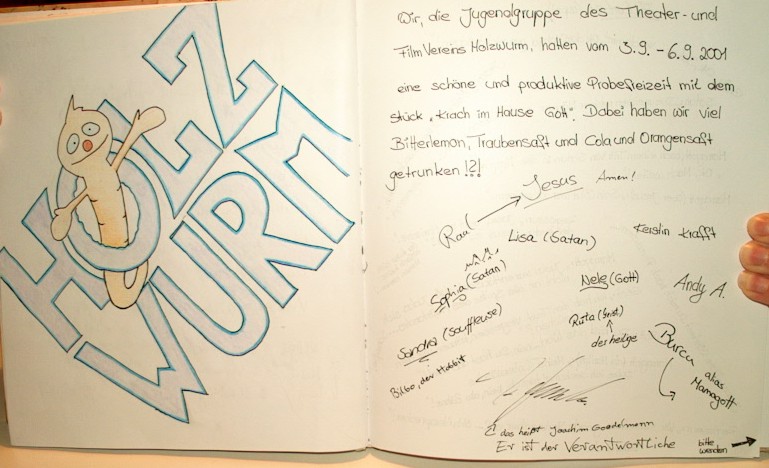 HOLZ
WURM
Wir, die Jugendgruppe des Theater- und
Film Vereins Holzwurm, hatten vom 3.9. - 6.9.2001
eine schöne und produktive Probefreizeit mit dem
stück „Krach im Hause Gott“. Dabei haben wir viel
Bitterlemon, Traubensaft und Cola und Orangensaft
getrunken !?!
Raul → Jesus Amen!
Lisa (Satan)
Kerstin Krafft
Sophia (Satan)
Nele (Gott)
Andy A.
Sandra (Souffleuse)
Ruta (Geist)
der heilige
Burcu alias
Mamagott
Bilbo, der Hobbit
das heißt Joachim
Er ist der Verantwortliche
bitte
wenden